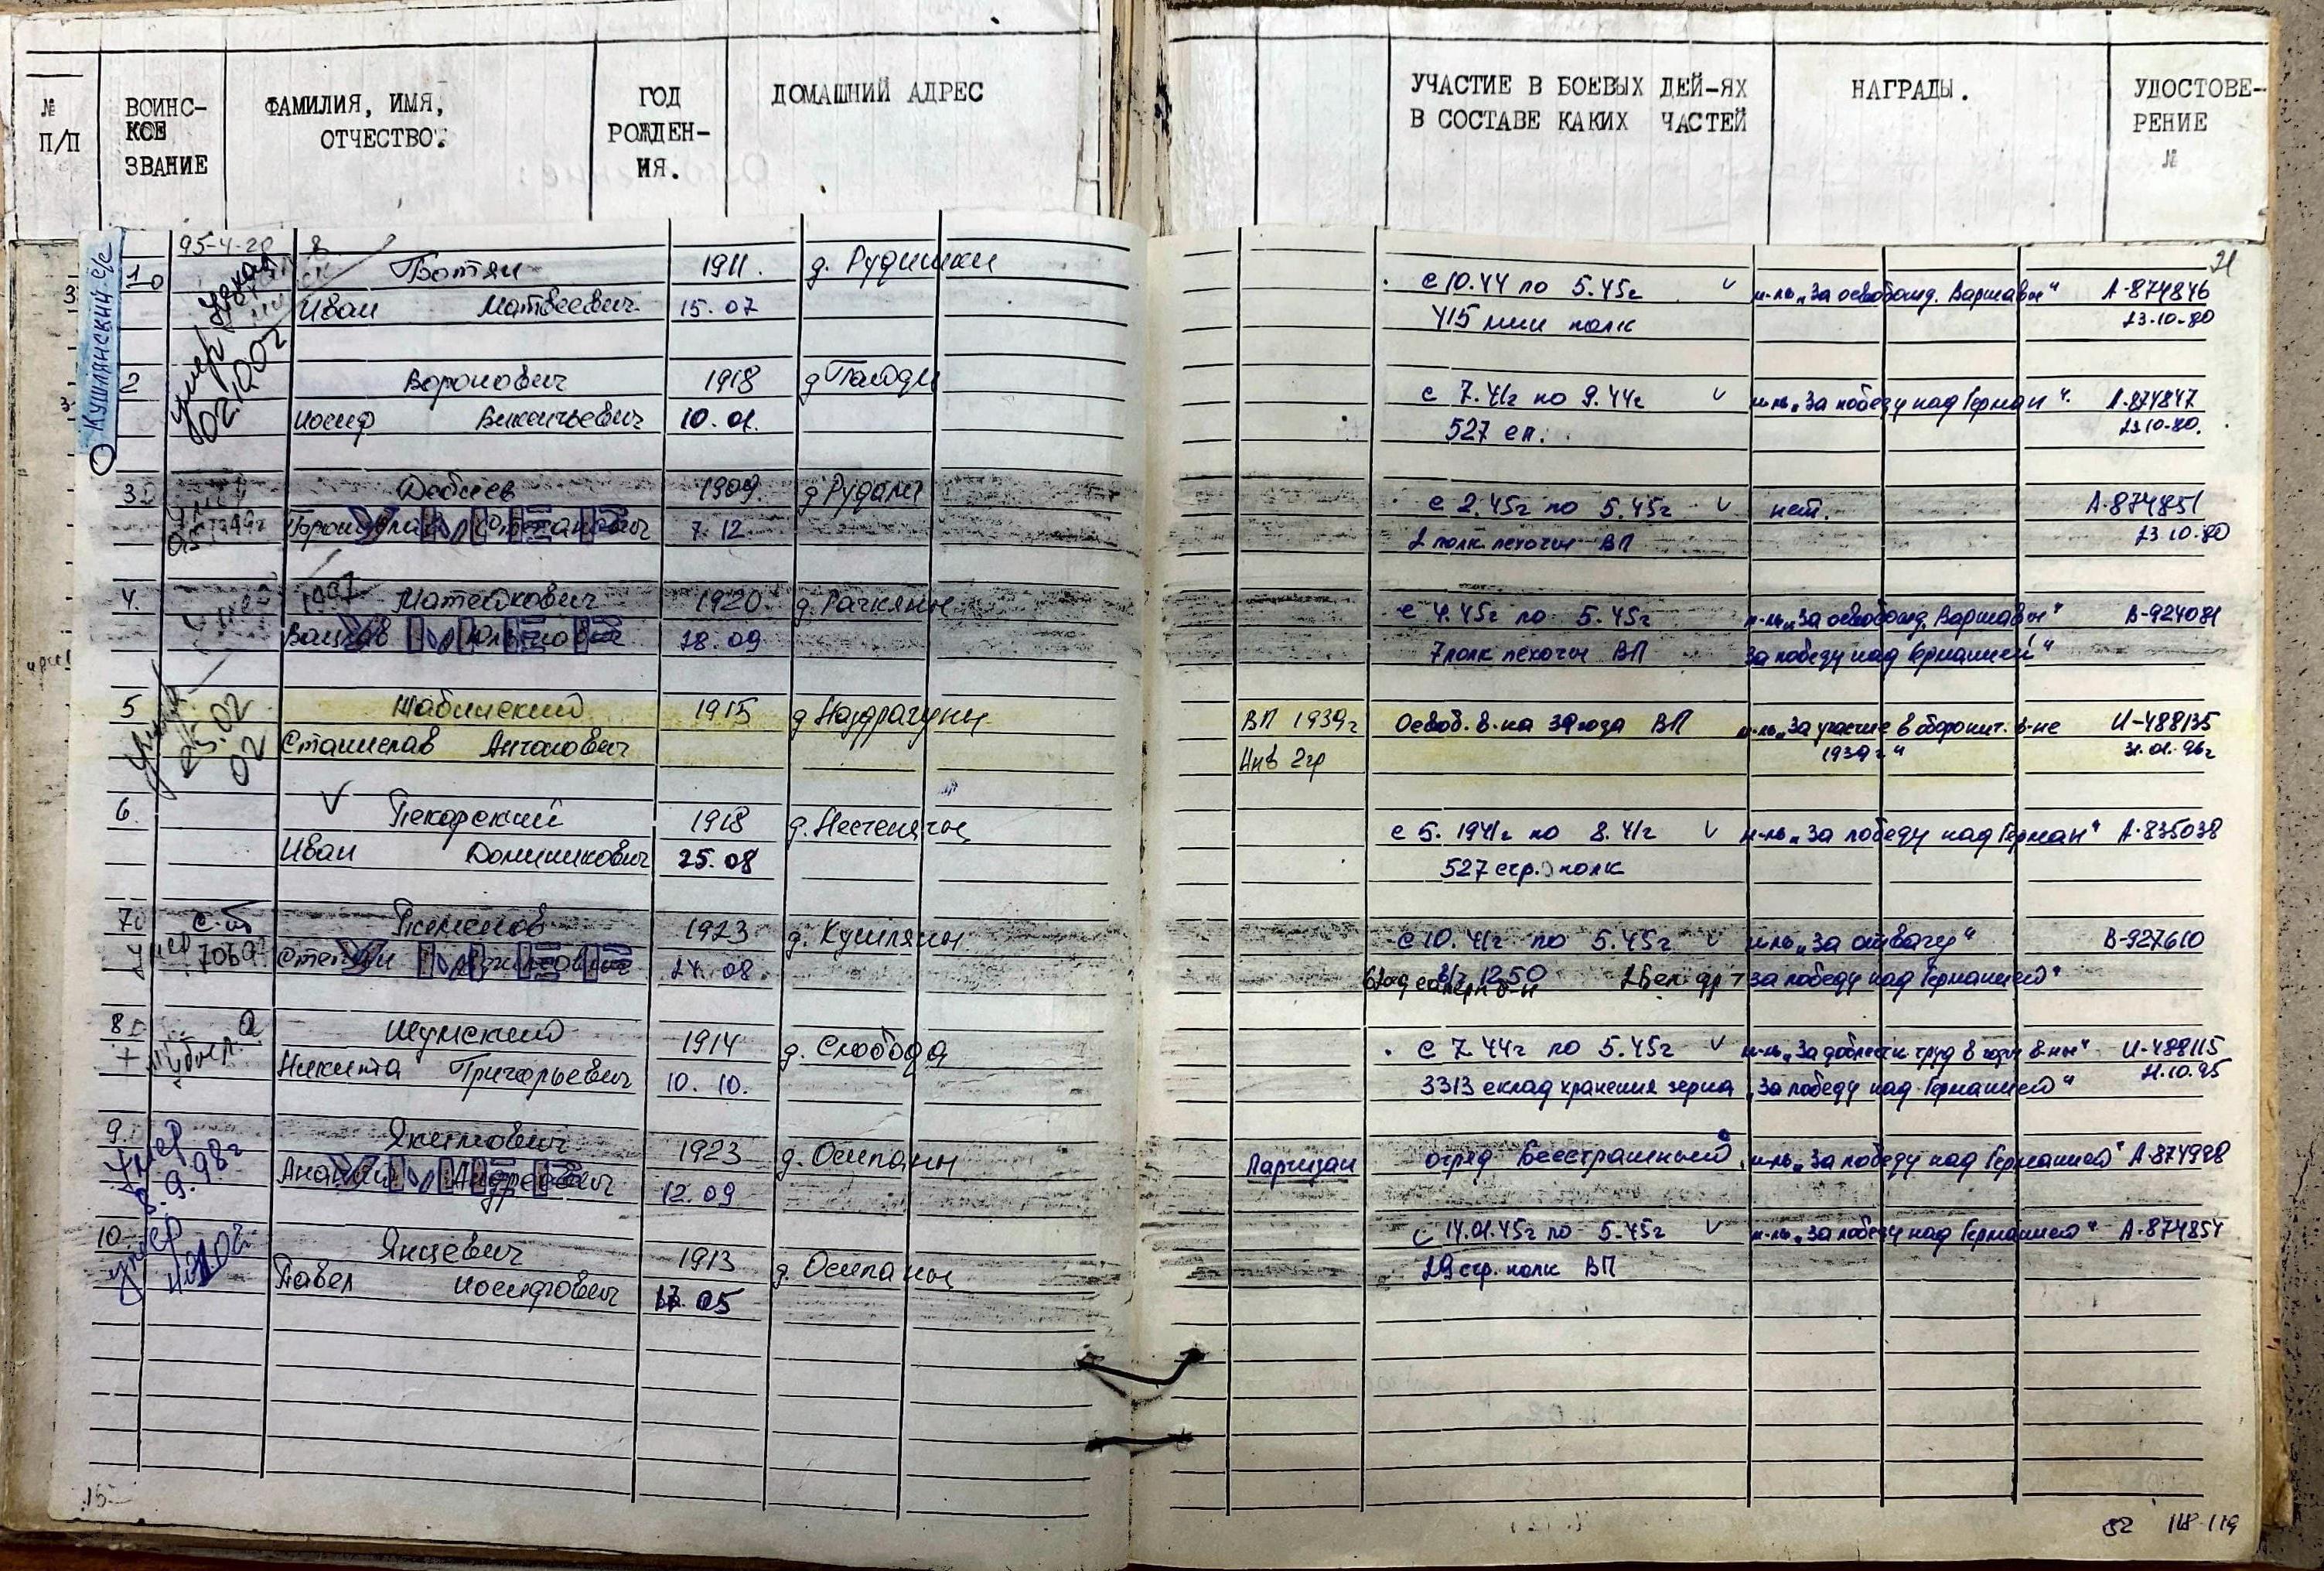 № П/П
ВОИНС-КОЕ ЗВАНИЕ
ФАМИЛИЯ, ИМЯ, ОТЧЕСТВО.
ГОД РОЖДЕН-ИЯ.
ДОМАШНИЙ АДРЕС
УЧАСТИЕ В БОЕВЫХ ДЕЙ-ЯХ
В СОСТАВЕ КАКИХ ЧАСТЕЙ
НАГРАДЫ.
УДОСТОВЕ-РЕНИЕ №
Кушлянский с/с
21
95-4-20
1 Ботян 1911. д. Рудишки с 10.44 по 5.45г м-ль „За освобожд. Варшавы" А-874846
Иван Матвеевич 15.07 415 мин полк 23.10.80
умер 02.10.02
2 Воронович 1918 с 7.41г по 9.44г м-ль „За победу над Герман". А-874847
Иосиф Викентьевич 10.01. 527 сп. 23.10.80.
3 1909. с 2.45г по 5.45г нет. А-874851
7.12 2 полк пехоты ВП 23.10.80
4. Матейкович 1920 д. Рачкяны с 4.45г по 5.45г м-ль „За освобожд. Варшавы"
1997
Вацлав 28.09 7 полк пехоты ВП За победу над Германией"
5 Шаблинский 1915 ВП 1939г Освоб. в-на 39 года ВП м-ль „За участие в оборонит. в-не И-488135
Станислав Антонович Инв 2гр 1939г" 31.01.96г
02
6. Пекарский 1918 с 5.1941г по 8.41г м-ль „За победу над Герман" А-835038
Иван Доминикович 25.08 527 стр. полк
7 1923 д. Кушляны с 10.41г по 5.45г м-ль „За отвагу" В-927610
Степан 24.08 в/ч 1250 За победу над Германией"
8 Шумский 1914 д. Слобода с 7.44г по 5.45г м-ль „За доблестн труд в годы в-ны" И-488115
Никита Григорьевич 10.10. 3313 склад хранения зерна „За победу над Германией" 21.10.95
9. Якимович 1923 д. Осипаны Партизан отряд Бесстрашный м-ль „За победу над Германией" А-874998
умер 8.9.98г
Андреевич 12.09
10. Янцевич 1913 д. Осипаны с 14.01.45г по 5.45г м-ль „За победу над Германией" А-874854
умер
Павел Иосифович 17.05 29 стр. полк ВП
118-119